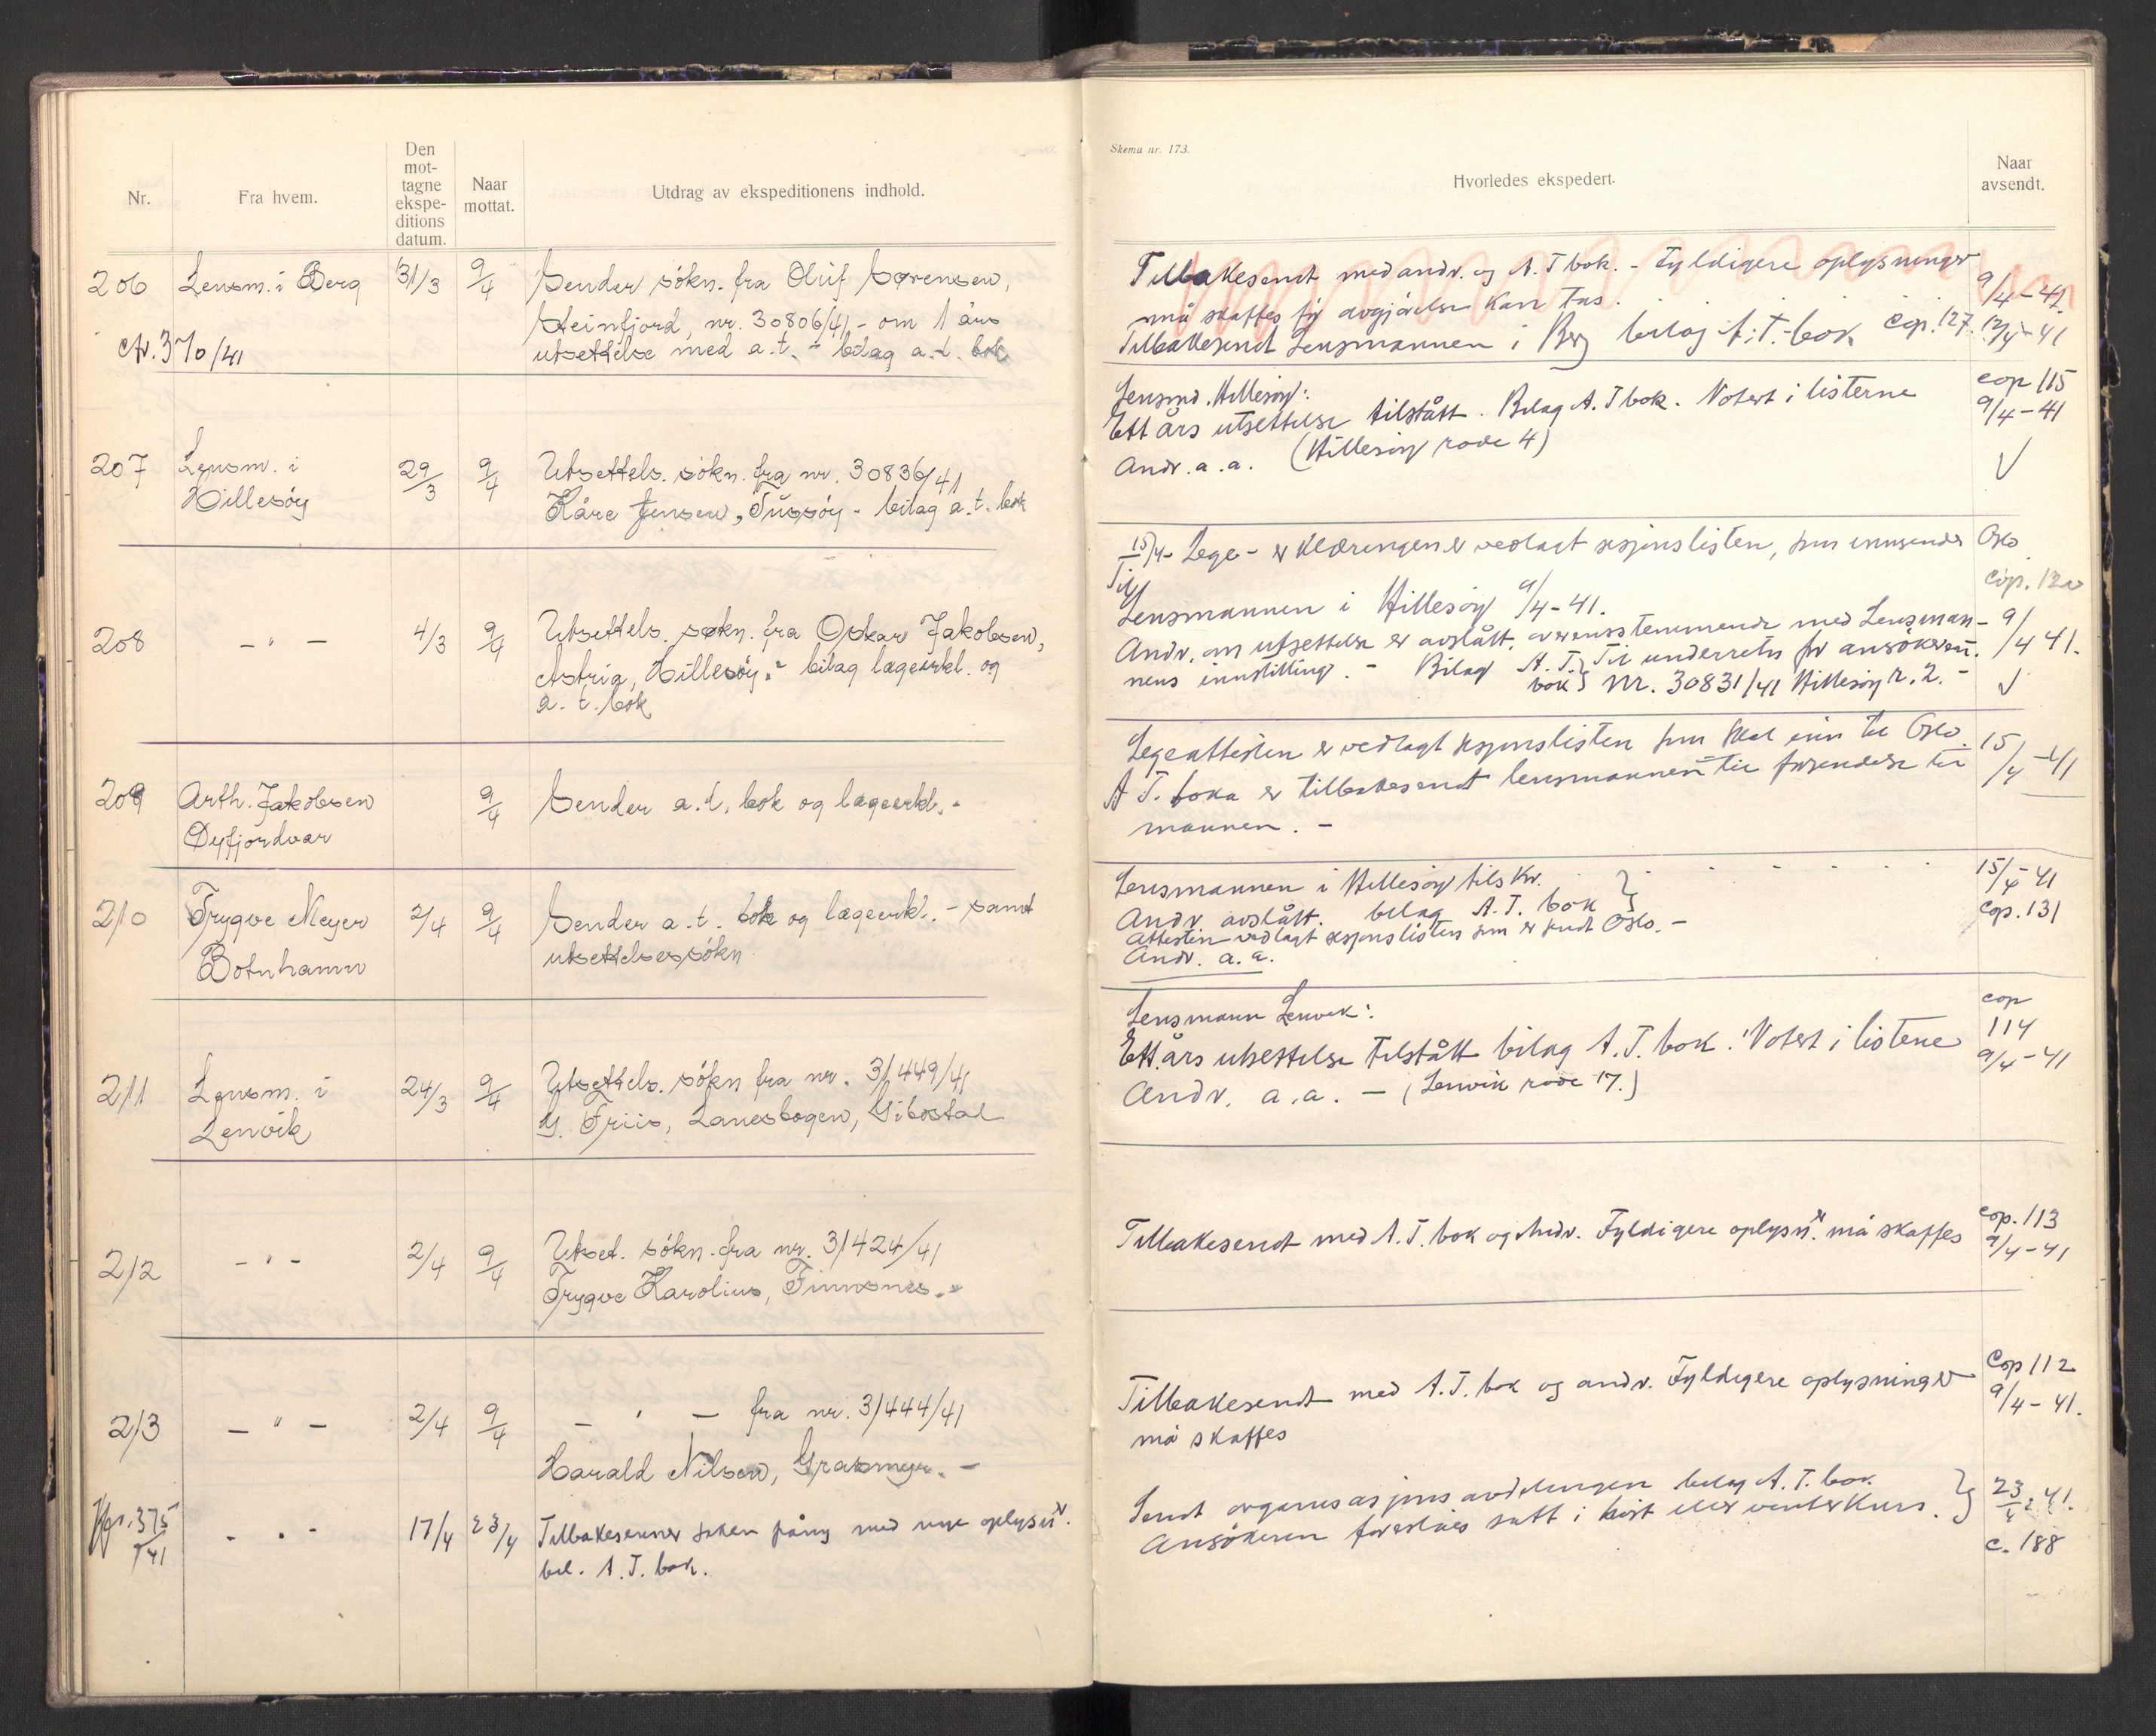 Nr.
Fra hvem.
Den
mot-
tagne
ekspe-
ditions
datum.
Naar
mottat.
Utdrag av ekspeditionens indhold.
206 Lensm. i Berg 31/3 9/4 Sender søkn. fra Oluf Sørensen,
Steinfjord, nr. 30806/41, - om 1 års
370/41 utsettelse med a.t. - bilag a.t. bok
207 Lensm. i 29/3 9/4 Utsettels. søkn. fra nr. 30836/41
Hillesøy Kåre Jensen, Tussøy - bilag a.t. bok
208 - " - 4/3 9/4 Utsettels. søkn. fra Oskar Jakobsen,
Hillesøy. - bilag lægeerkl. og
a. t. bok
209 Arth. Jakobsen 9/4 Sender a.t. bok og lægeerkl. -
Øyfjordvær
210 Trygve Meyer 2/4 9/4 Sender a.t. bok og lægeerkl. - samt
Botnhamn utsettelsessøkn
211 Lensm. i 24/3 9/4 Utsettels. søkn fra nr. 31449/41
Lenvik Friis, Lanesbogen, Gibostad
212 - " - 2/4 9/4 Utset. søkn. fra nr. 31424/41
Trygve Karolius, Finnsnes. -
213 - " - 2/4 9/4 - " - fra nr. 31444/41
Harald Nilsen, Grasmyr. -
Jfr. 375/41 - " - 17/4 23/4 Tilbakesender søkn påny med nye oplysn.
bil. A.T. bok.
Skema nr. 173.
Hvorledes ekspedert.
Naar
avsendt.
Tilbakesendt med andr. og A.T bok. - Fyldigere oplysninger
må skaffes før avgjørelse kan tas. 9/4-41.
Tilbakesendt Lensmannen i Berg bilag A.T.-bok cop. 127. 12/4-41
Lensmd. Hillesøy: cop 115
Ett års utsettelse tilstått. Bilag A.T bok. Notert i listerne 9/4-41
Andr. a.a. (Hillesøy rode 4)
15/4- Lege- erklæringen er vedlagt sesjonslisten, som innsendes Oslo
Til cop. 120
Lensmannen i Hillesøy 9/4-41.
Andr. om utsettelse er avslått, overensstemmende med Lensman- 9/4 41.
nens innstilling. - Bilag A.T. bok} Til underretn for ansøkeren.
Nr. 30831/41 Hillesøy r. 2. -
Legeattesten er vedlagt sesjonslisten som skal inn til Oslo. 15/4-41
A T. boka er tilbakesendt lensmannen til forsendelse til
mannen. -
Lensmannen i Hillesøy tilskr. } 15/4-41
Andr. avslått. bilag A.T. bok cop. 131
Attesten vedlagt sesjonslisten som er sendt Oslo. -
Andr. a.a.
Lensmann Lenvik: cop
114
Ett års utsettelse tilstått bilag A.T. bok. Notert i listene 9/4-41
Andr. a.a. - (Lenvik rode 17.)
cop. 113
Tilbakesendt med A.T. bok og Andr. Fyldigere oplysn. må skaffes 9/4-41
Cop 112
Tilbakesendt med A.T. bok og andr. Fyldigere oplysninger 9/4-41.
må skaffes
Sendt organisasjonsavdelingen bilag A.T. bok } 23/4 41.
Ansøkeren foreslåes satt i høst eller vinterkurs.
c. 188